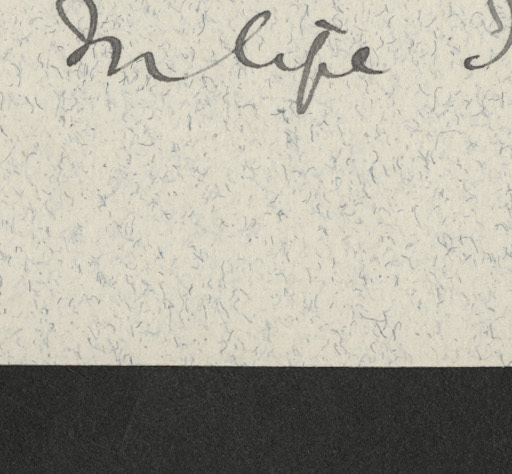 In life